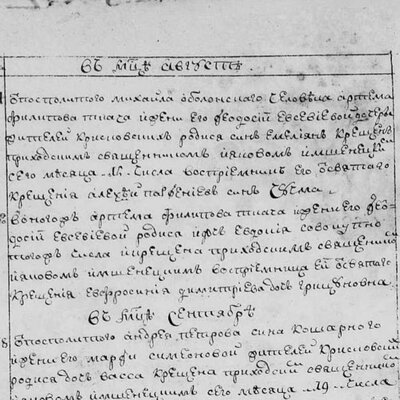 въ мцѣ августѣ.
Упосполитого михаила оболонского человѣка артема
филипова ткача ижени его феодосіи евсевіевой
жителей крисковскихъ родися синъ емеліанъ крещенъ
приходскимъ священникомъ іаковомъ
сего мѣсяца числа воспріемникъ его ѿсвятаго
крещенія алексѣй синъ
Увоногожъ артема филипова ткача ижени его ѳео
досіи евсевіевой родися дочь евдокія совокупно
тогожъ числа икрещена приходскимъ священико
іаковомъ воспріемница ей ѿсвятаго
крещенія евфросинія димитріева дочь
въ мцѣ Сентябрѣ
Упосполитого андрея петрова сина кошарного
ижени его марфи симеоновой жителей крисковски
родися дочь васса крещена приходски священико
іаковомъ сего мѣсяца 19 числа